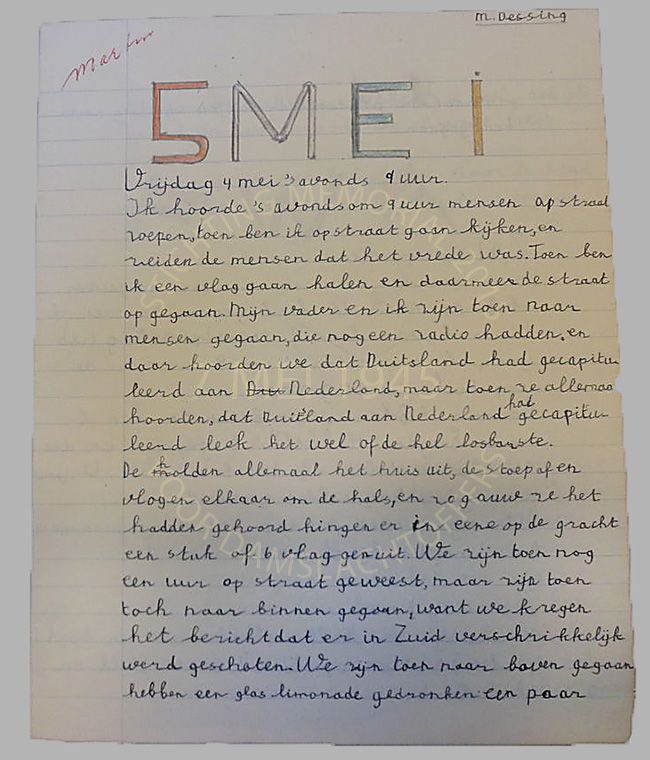 M. Dessing
Martin
5 MEI
Vrijdag 4 mei 's avonds 9 uur.
Ik hoorde 's avonds om 9 uur mensen op straat
roepen, toen ben ik op straat gaan kijken, en
zeiden de mensen dat het vrede was. Toen ben
ik een vlag gaan halen en daarmee de straat
op gegaan. Mijn vader en ik zijn toen naar
mensen gegaan, die nog een radio hadden. en
daar hoorden we dat Duitsland had gecapitu
leerd aan Nederland, maar toen ze allemaa
hoorden, dat Duitland aan Nederland hat gecapitu
leerd leek het wel of de hel losbarste.
De holden allemaal het huis uit, de stoep af en
vlogen elkaar om de hals, en zo gauw ze het
hadden gehoord hingen er in eene op de gracht
een stuk of 6 vlaggen uit. We zijn toen nog
een uur op straat geweest, maar zijn toen
toch naar binnen gegaan, want we kregen
het bericht dat er in Zuid verschrikkelijk
werd geschoten. We zijn toen naar boven gegaan
hebben een glas limonade gedronken een paar
STICHTING MEMORIAL 2015
7 MEI 1945
VOOR DAMSLACHTOFFERS